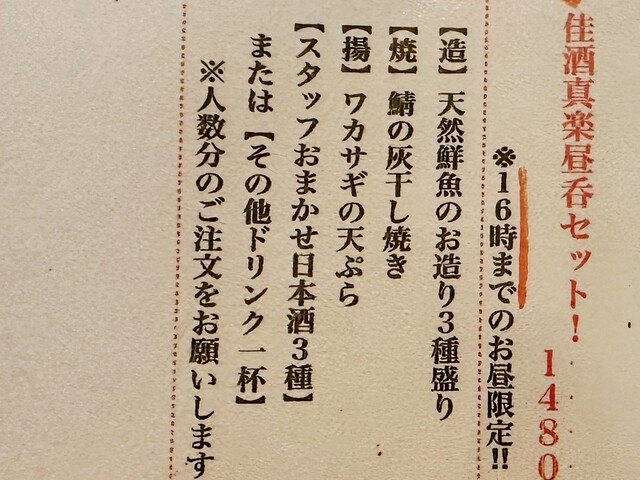 佳酒真楽昼呑セット！ 1480
※16時までのお昼限定!!
【造】天然鮮魚のお造り3種盛り
【焼】鯖の灰干し焼き
【揚】ワカサギの天ぷら
【スタッフおまかせ日本酒3種】
または【その他ドリンク一杯】
※人数分のご注文をお願いします